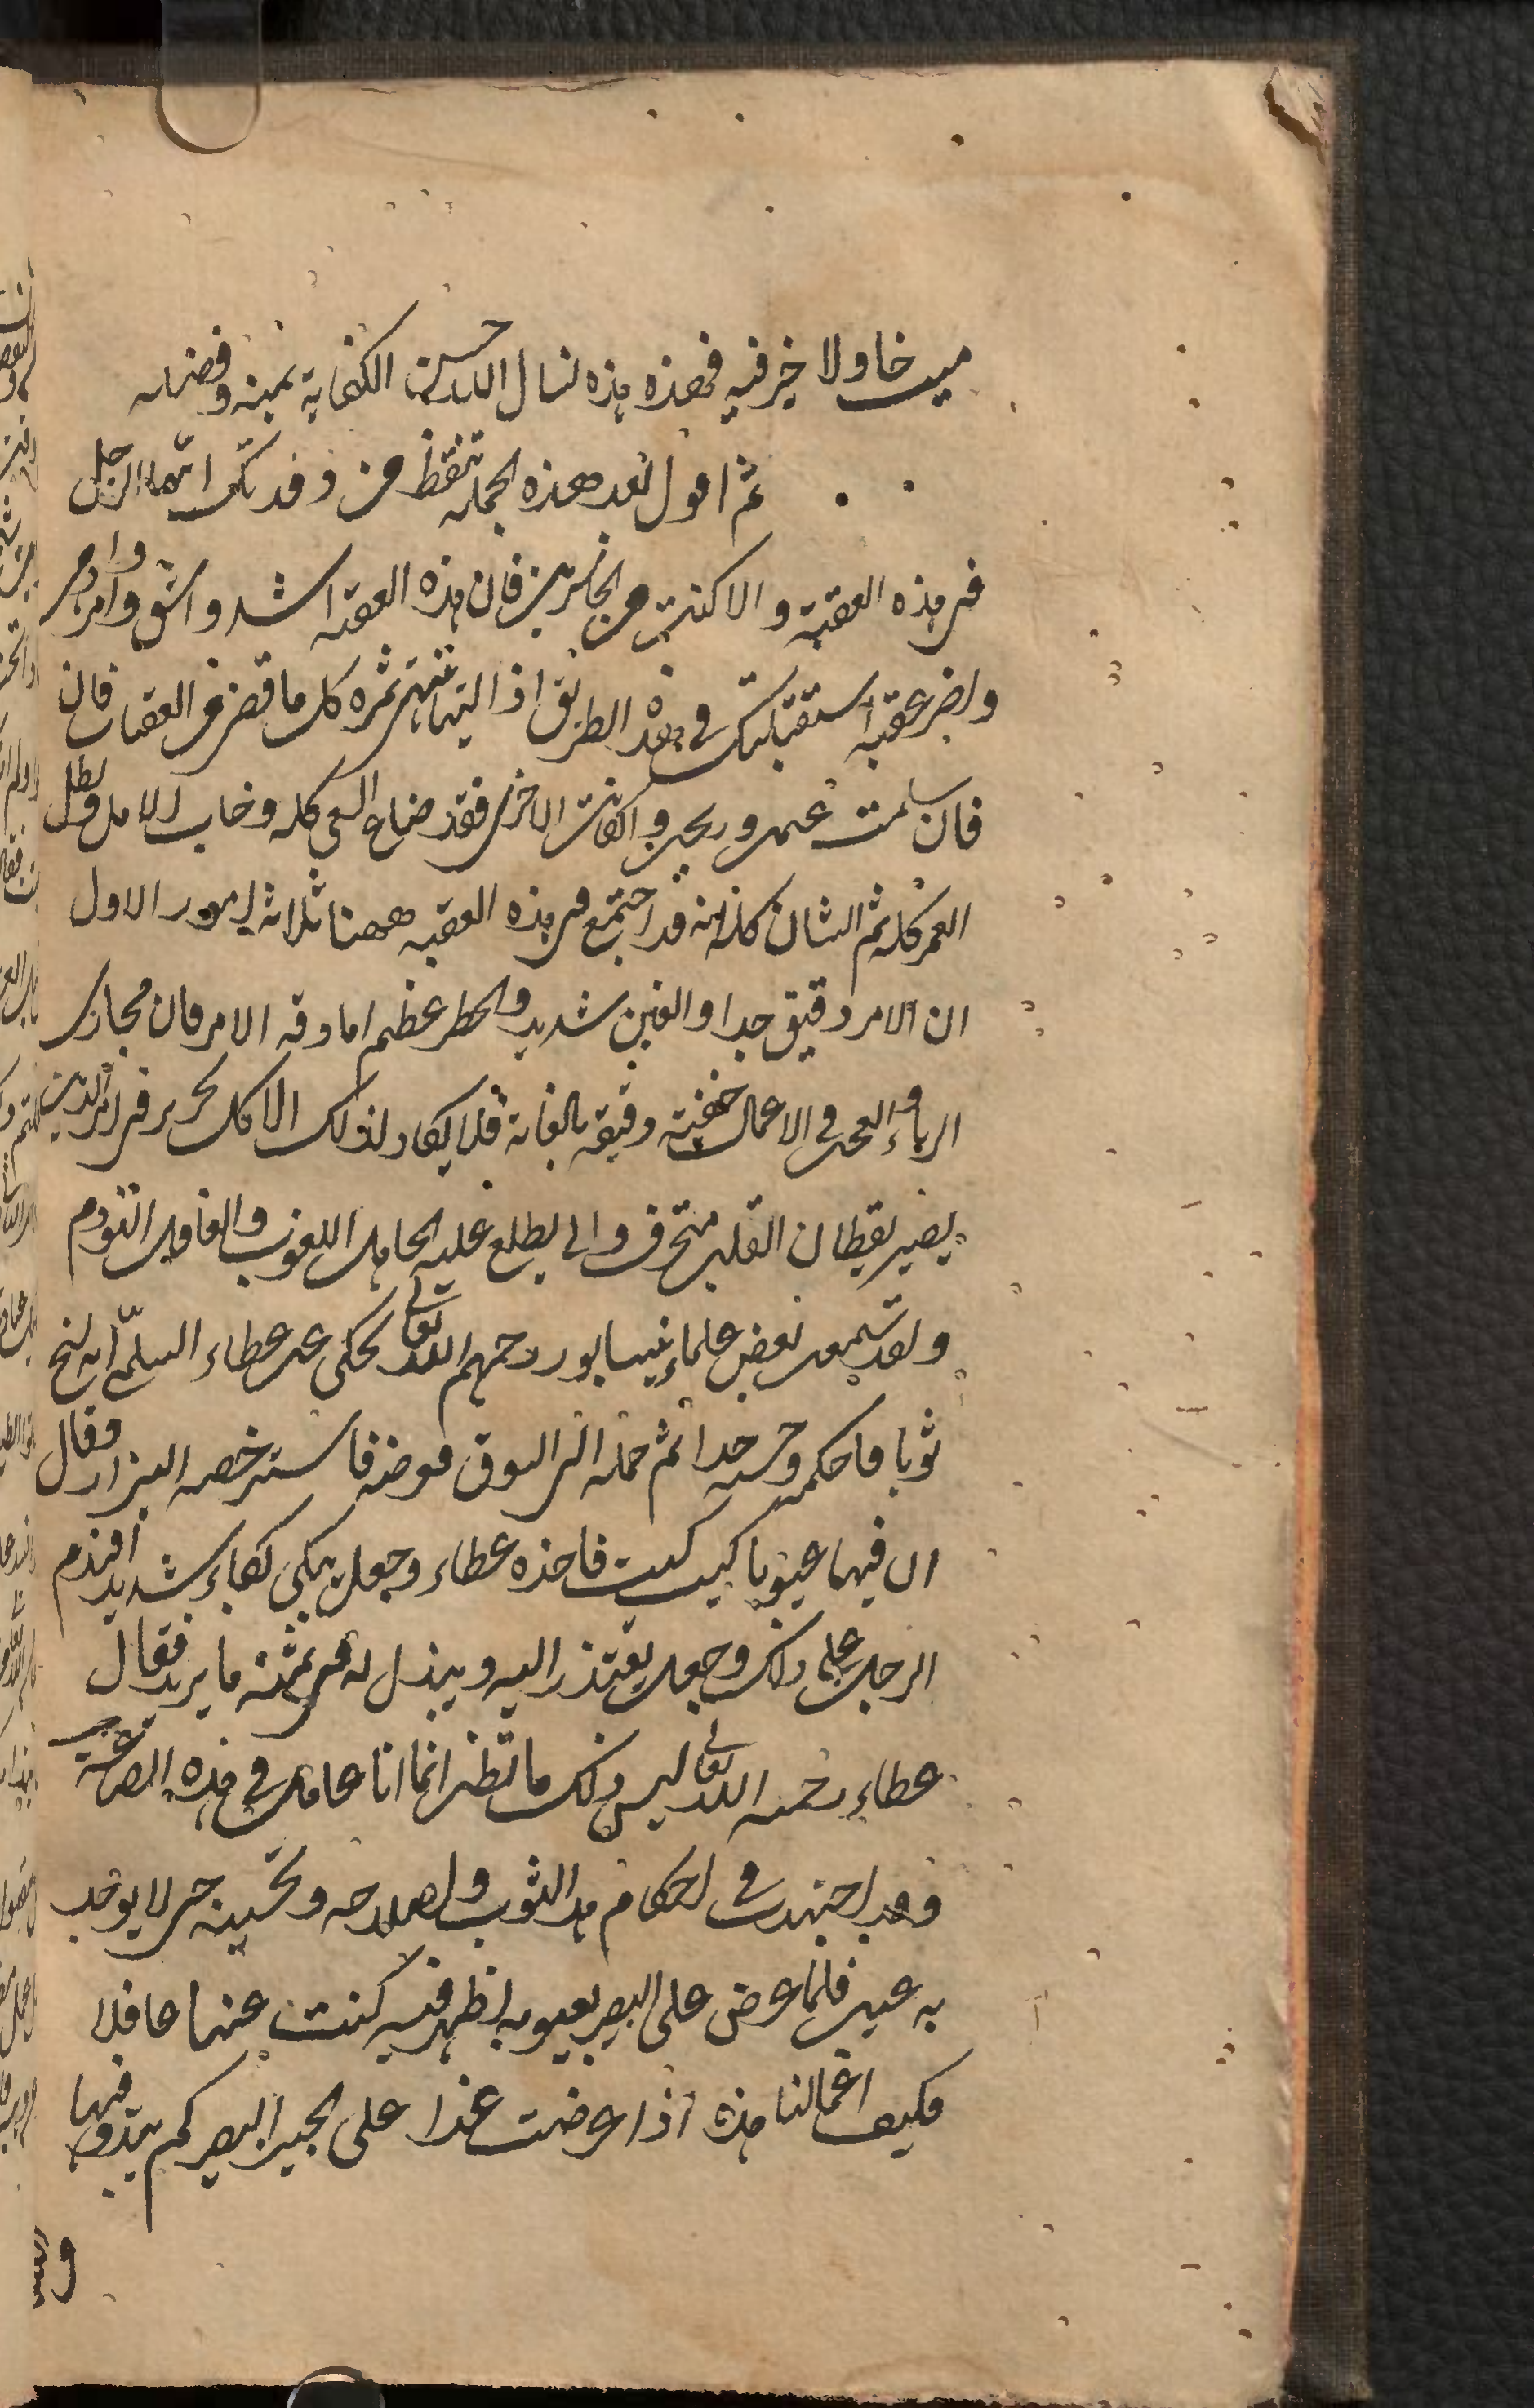 ميت خاولا خير فيه فهذه هذه نسال الله حسن الكفاية بمنه وفضله
ثم اقول بعد هذه الجملة تيقظ من رقدتك ايها الرجل
في هذه العقبة والا كنت من الخاسرين فان هذه العقبة اشد واشق وامر وادهى
واضر عقبة استقبلتك في هذه الطريق اذ اليها تنتهي ثمرة كل ما قضي من العقبات فان
فان سلمت غنمت وربحت وان كانت الاخرى فقد ضاع السعي كله وخاب الامل وبطل
العمر كله ثم الشان كله انه قد اجتمع في هذه العقبة ههنا ثلاثة امور الاول
ان الامر دقيق جدا والغبن شديد والخطر عظيم اما دقة الامر فان مجاري
الرياء والعجب في الاعمال خفية دقيقة بالغاية فلا يكاد لذلك الا كل نحرير في امر الدين
بصير يقظان القلب متحرز والى يطلع عليه الجاهل اللعوب والغافل النؤوم
ولقد سمعت بعض علماء نيسابور رحمهم الله تعالى يحكي عن عطاء السلمي انه نسج
ثوبا فاحكمه وحسنه جدا ثم حمله الى السوق فعرضه فاسترخصه البزاز وقال
ان فيها عيوبا كيت كيت فاخذه عطاء وجعل يبكي بكاء شديدا فندم
الرجل على ذلك وجعل يعتذر اليه ويبذل له في ثمنه ما يريد فقال
عطاء رحمه الله تعالى ليس ذلك ما تظن انما انا عامل في هذه الصناعة
وقد اجتهدت في احكام هذا الثوب واصلاحه وتحسينه حتى لا يوجد
به عيب فلما عرض على البصير بعيوبه اظهر فيه كنت عنها غافلا
فكيف اعمالنا هذه اذا عرضت غدا على الخبير البصير كم يبدو فيها